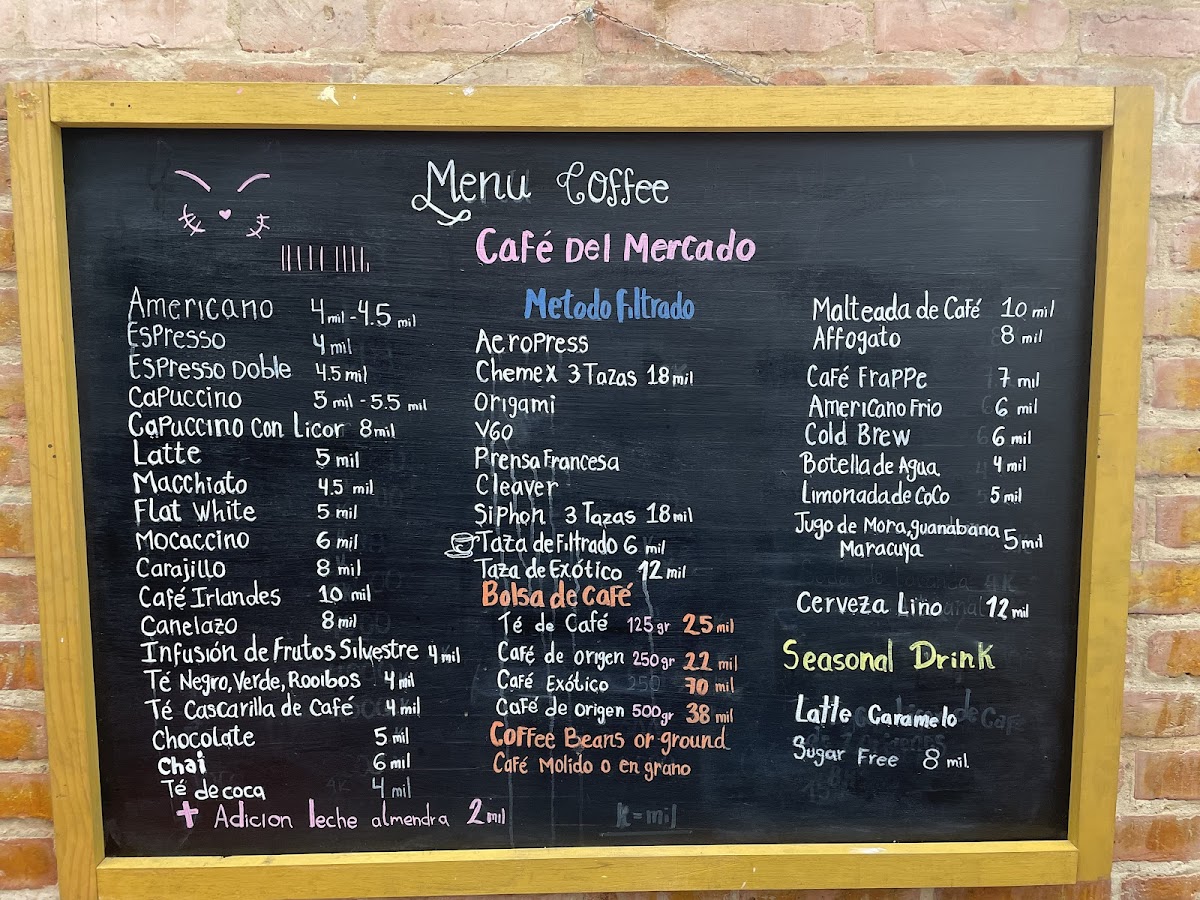 Menu Coffee
Café Del Mercado
Americano 4 mil - 4.5 mil
Espresso 4 mil
Espresso Doble 4.5 mil
Capuccino 5 mil - 5.5 mil
Capuccino con Licor 8 mil
Latte 5 mil
Macchiato 4.5 mil
Flat White 5 mil
Mocaccino 6 mil
Carajillo 8 mil
Café Irlandes 10 mil
Canelazo 8 mil
Infusión de Frutos Silvestre 4 mil
Té Negro, Verde, Rooibos 4 mil
Té Cascarilla de Café 4 mil
Chocolate 5 mil
Chai 6 mil
Té de coca 4 mil
+ Adicion leche almendra 2 mil
Metodo filtrado
AeroPress
Chemex 3 Tazas 18 mil
Origami
V60
Prensa Francesa
Cleaver
Siphon 3 Tazas 18 mil
Taza de Filtrado 6 mil
Taza de Exótico 12 mil
Bolsa de Café
Té de Café 125 gr 25 mil
Café de origen 250 gr 22 mil
Café Exótico 250 70 mil
Café de origen 500 gr 38 mil
Coffee Beans or ground
Café Molido o en grano
k = mil
Malteada de Café 10 mil
Affogato 8 mil
Café Frappe 7 mil
Americano Frio 6 mil
Cold Brew 6 mil
Botella de Agua 4 mil
Limonada de Coco 5 mil
Jugo de Mora, guanabana 5 mil
Maracuya
Cerveza Lino 12 mil
Seasonal Drink
Latte Caramelo
Sugar Free 8 mil